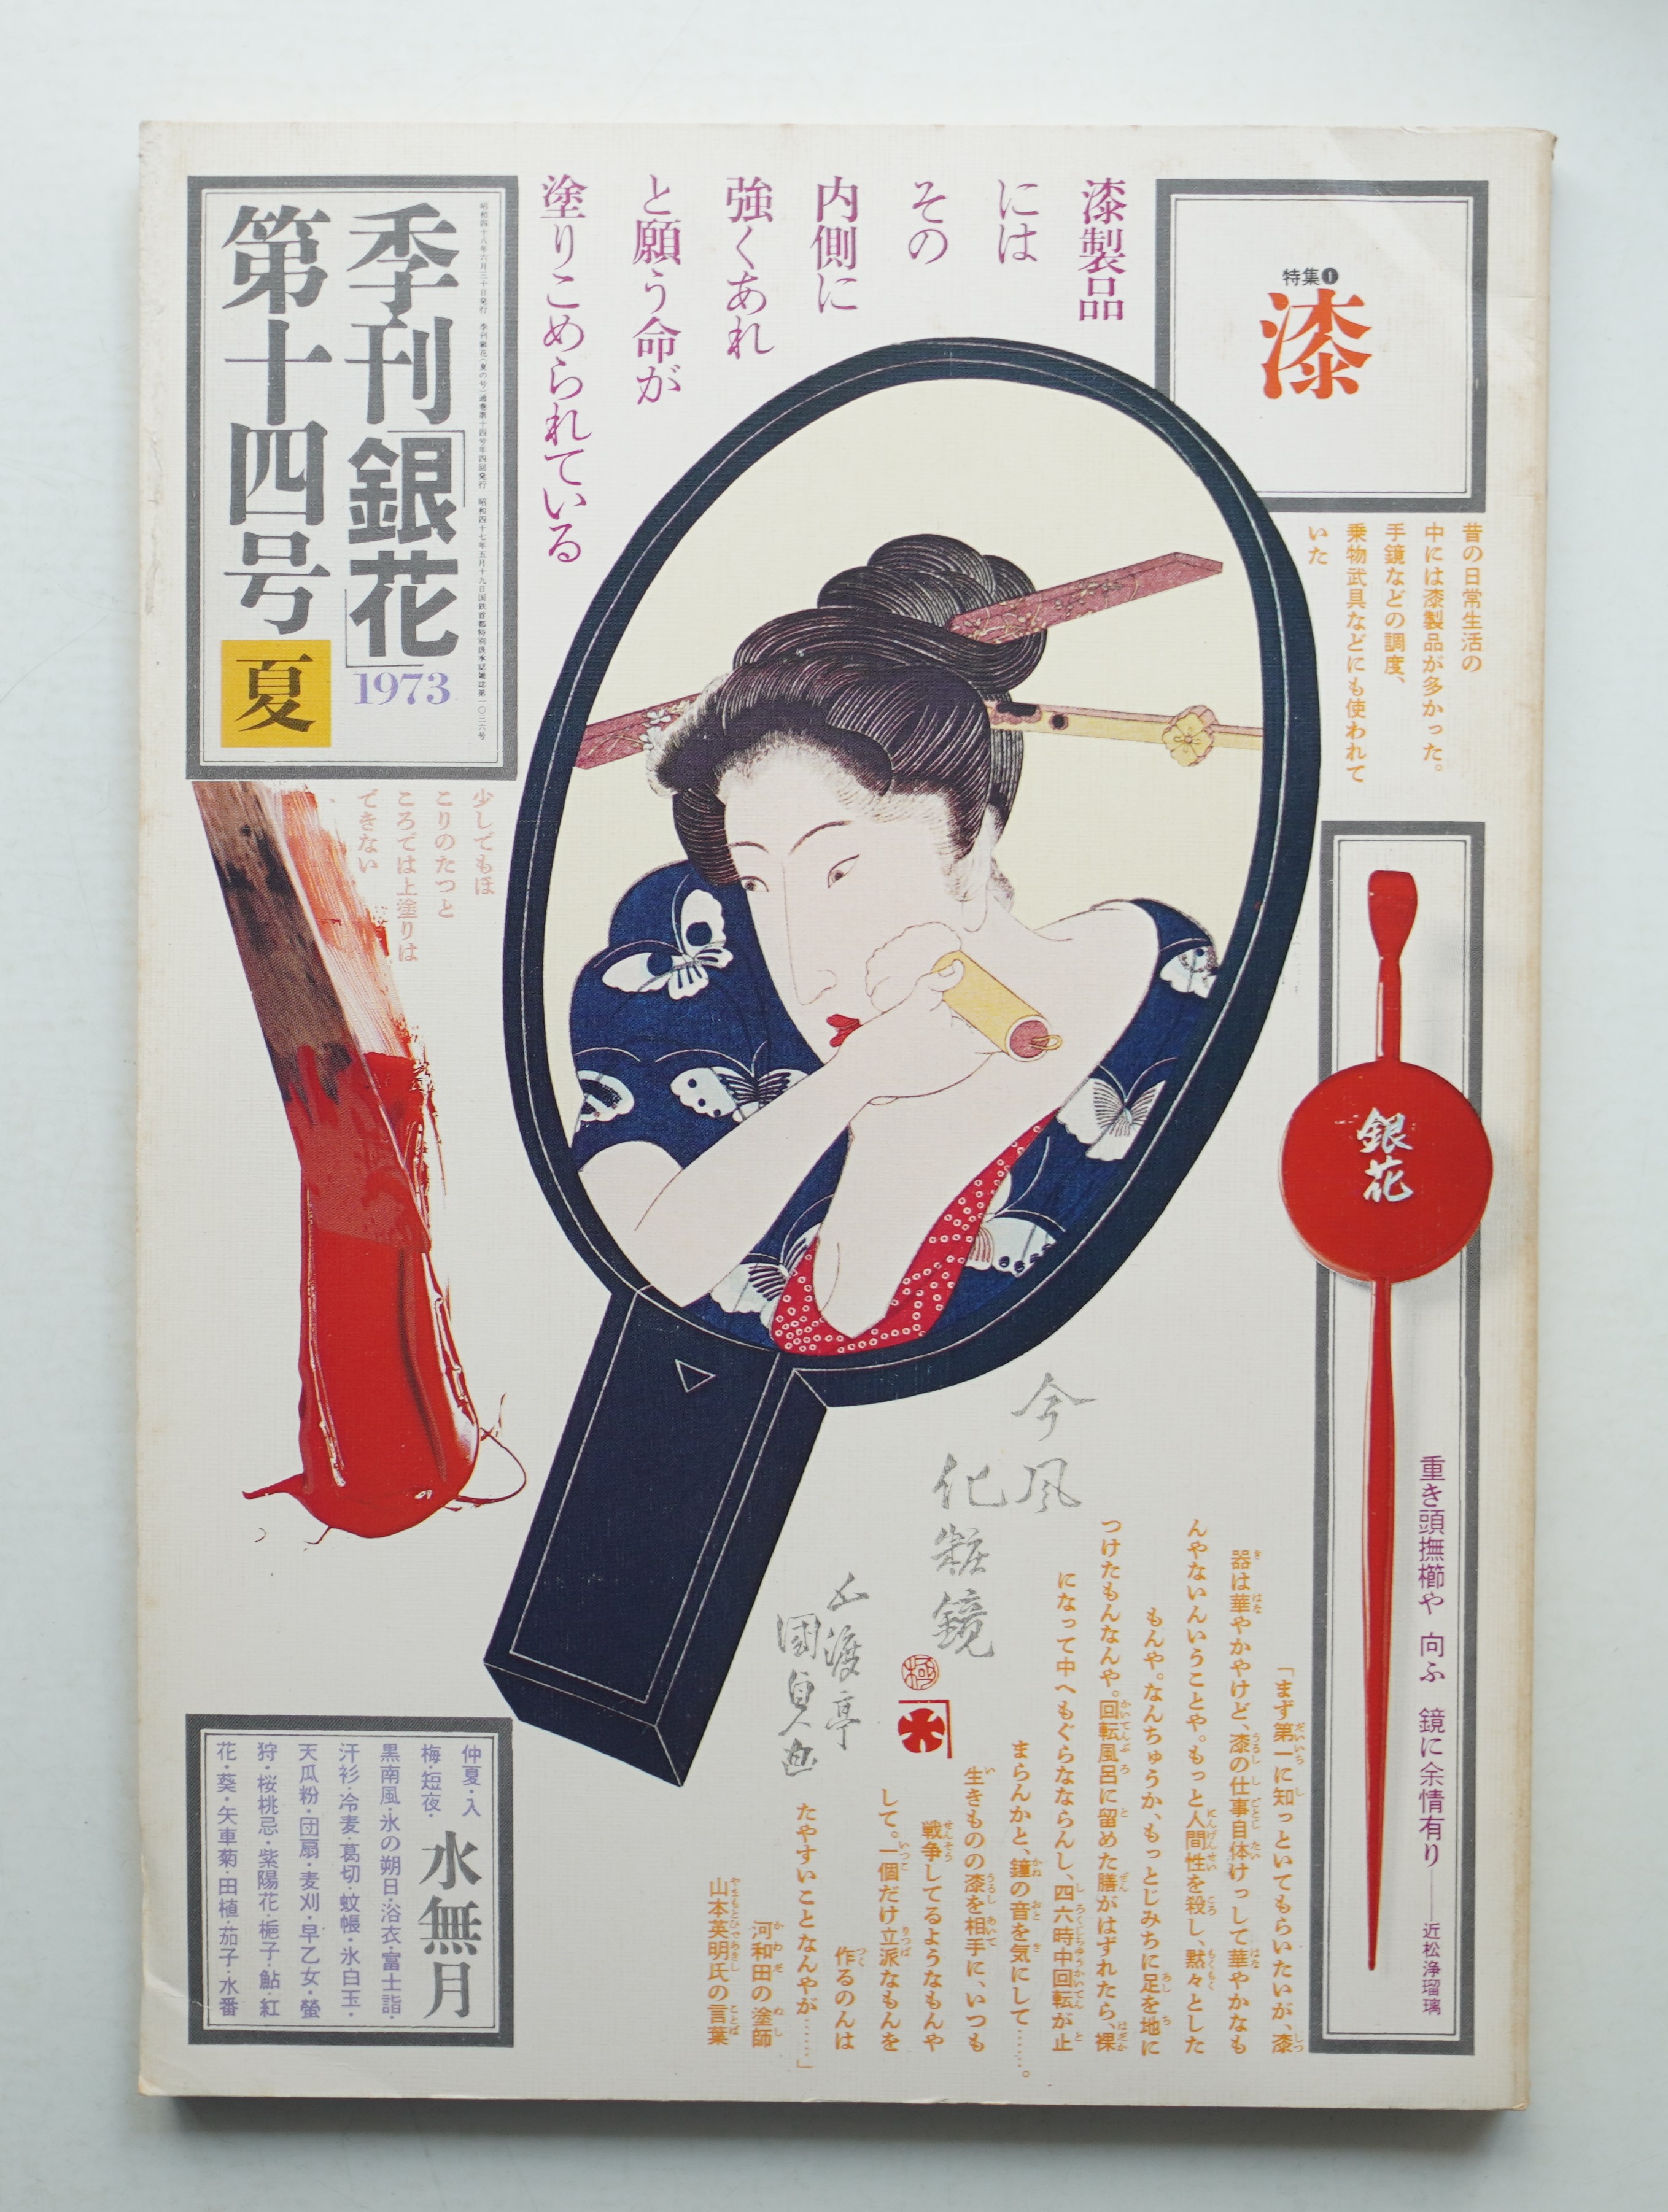 特集❶
漆
漆製品
には
その
内側に
強くあれ
と願う命が
塗りこめられている
昭和四十八年六月三十日発行 季刊銀花(夏の号)通巻第十四号年四回発行 昭和四十七年五月十九日国鉄首都特別扱承認雑誌第一〇三六号
季刊「銀花」1973
第十四号 夏
昔の日常生活の
中には漆製品が多かった。
手鏡などの調度、
乗物武具などにも使われて
いた
少しでもほ
こりのたつと
ころでは上塗りは
できない
銀花
重き頭撫櫛や 向ふ 鏡に余情有り——近松浄瑠璃
今風
化粧鏡
五渡亭
國貞画
極
「まず第一に知っといてもらいたいが、漆
器は華やかやけど、漆の仕事自体けっして華やかなも
んやないんいうことや。もっと人間性を殺し、黙々とした
もんや。なんちゅうか、もっとじみちに足を地に
つけたもんなんや。回転風呂に留めた膳がはずれたら、裸
になって中へもぐらなならんし、四六時中回転が止
まらんかと、鐘の音を気にして……。
生きものの漆を相手に、いつも
戦争してるようなもんや
して。一個だけ立派なもんを
作るのんは
たやすいことなんやが……」
河和田の塗師
山本英明氏の言葉
水無月
仲夏・入
梅・短夜・
黒南風・氷の朔日・浴衣・富士詣・
汗衫・冷麦・葛切・蚊帳・氷白玉・
天瓜粉・団扇・麦刈・早乙女・螢
狩・桜桃忌・紫陽花・梔子・鮎・紅
花・葵・矢車菊・田植・茄子・水番